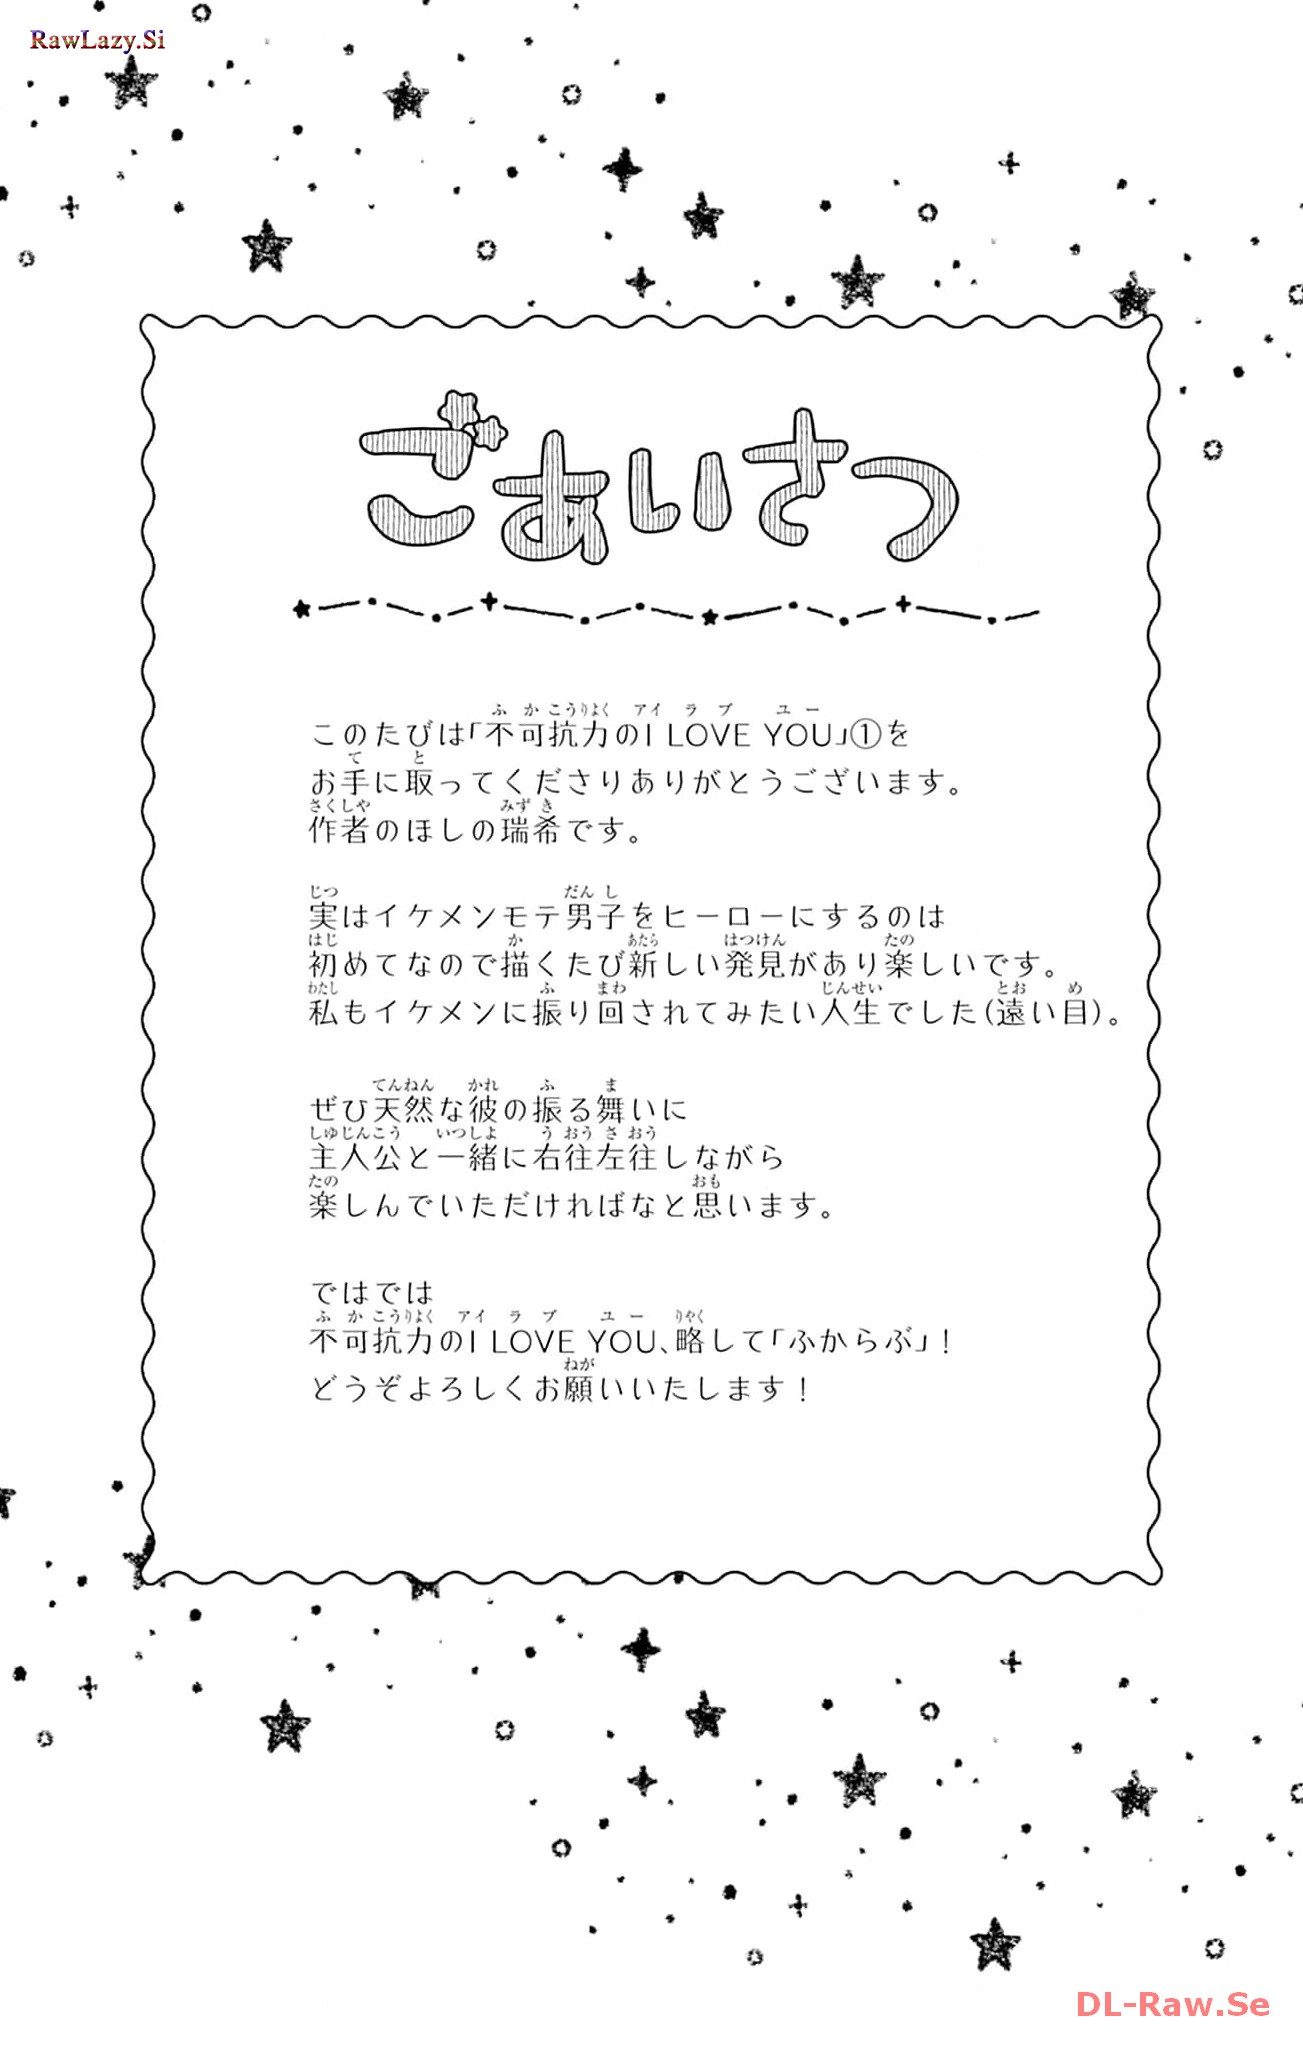 RawLazy.Si
ごあいさつ
このたびは「不可抗力のI LOVE YOU」①を
お手に取ってくださりありがとうございます。
作者のほしの瑞希です。
実はイケメンモテ男子をヒーローにするのは
初めてなので描くたび新しい発見があり楽しいです。
私もイケメンに振り回されてみたい人生でした(遠い目)。
ぜひ天然な彼の振る舞いに
主人公と一緒に右往左往しながら
楽しんでいただければなと思います。
ではでは
不可抗力のI LOVE YOU、略して「ふからぶ」!
どうぞよろしくお願いいたします!
DL-Raw.Se